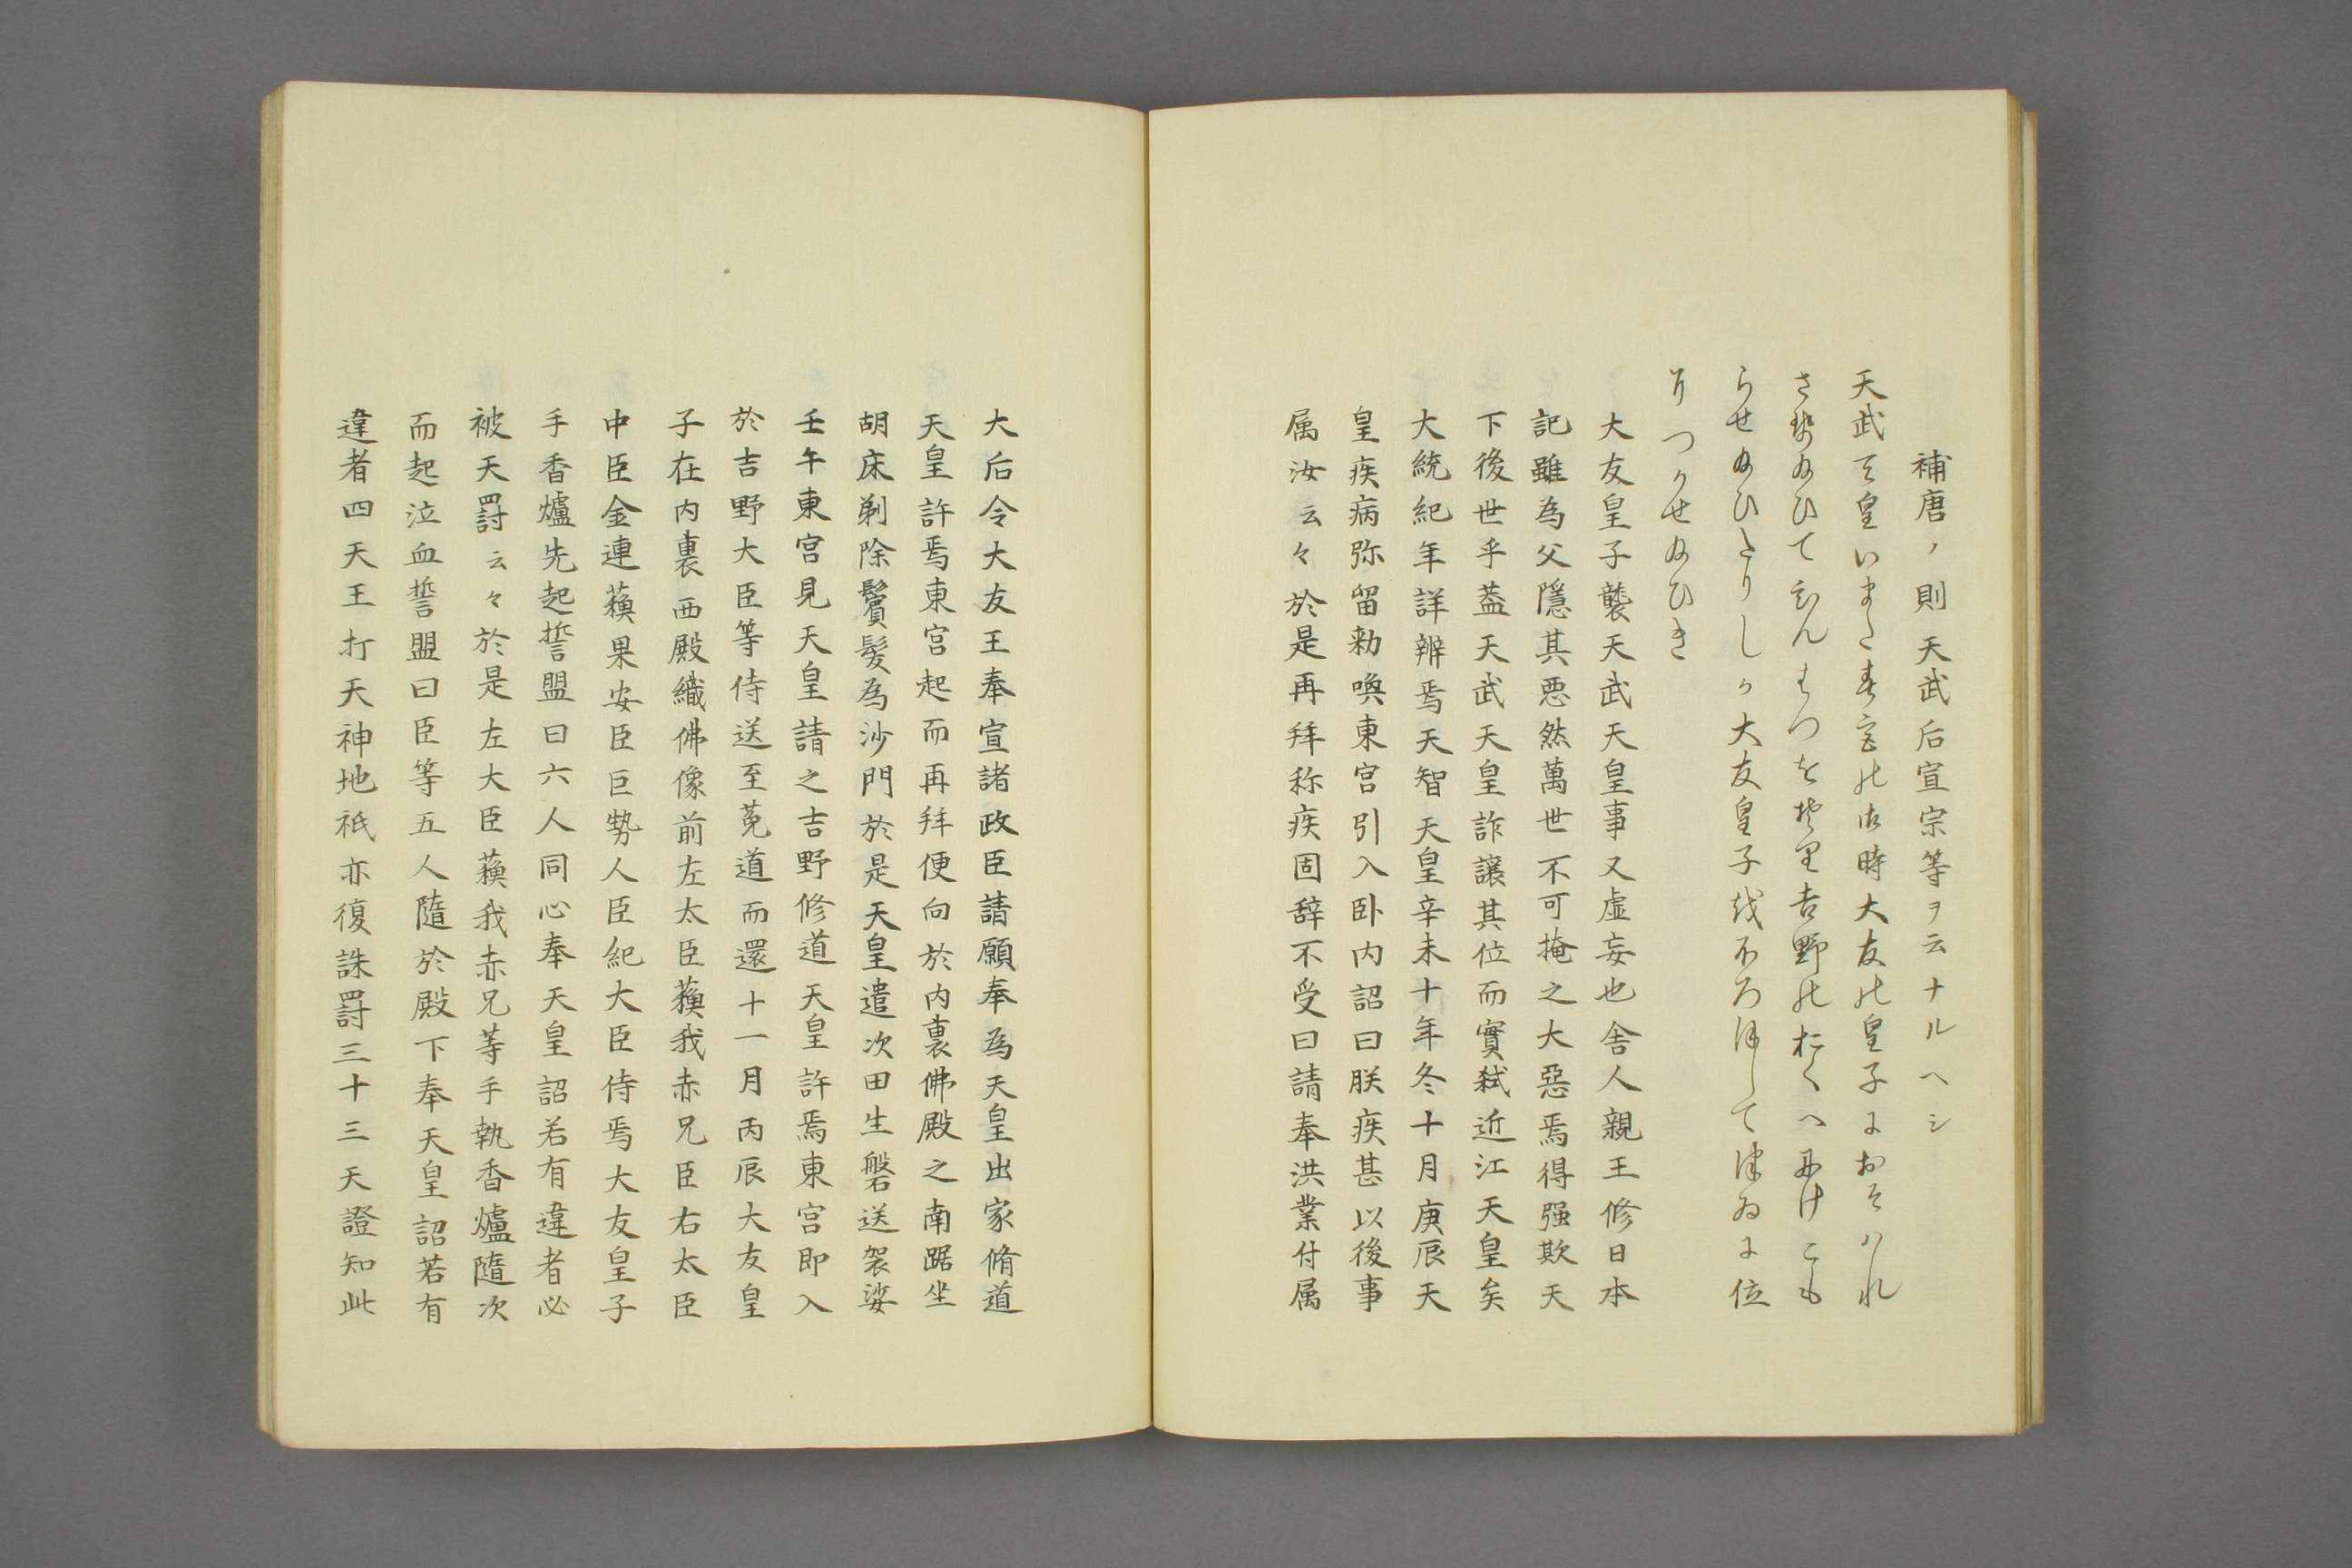 補唐ノ則天武后宣宗等ヲ云ナルヘシ
天武天皇いまた春宮の御時大友の皇子におそはれ
させ給ひてひんはつをそり吉野のおくへにけこも
らせ給ひたりしか大友皇子をほろほしてつゐに位
につかせ給ひき
大友皇子襲天武天皇事又虚妄也舎人親王修日本
記雖為父隠其悪然萬世不可掩之大惡焉得强欺天
下後世乎葢天武天皇詐讓其位而實弑近江天皇矣
大統紀年詳辨焉天智天皇辛未十年冬十月庚辰天
皇疾病弥留勅喚東宮引入卧内詔曰朕疾甚以後事
属汝云々於是再拜称疾固辞不受曰請奉洪業付属
大后令大友王奉宣諸政臣請願奉為天皇出家脩道
天皇許焉東宮起而再拜便向於内裏佛殿之南踞坐
胡床剃除鬢髮為沙門於是天皇遣次田生磐送袈娑
壬午東宮見天皇請之吉野修道天皇許焉東宮即入
於吉野大臣等侍送至菟道而還十一月丙辰大友皇
子在内裏西殿織佛像前左太臣蘓我赤兄臣右太臣
中臣金連蘓果安臣巨勢人臣紀大臣侍焉大友皇子
手香爐先起誓盟曰六人同心奉天皇詔若有違者必
被天罸云々於是左大臣蘓我赤兄等手執香爐隨次
而起泣血誓盟曰臣等五人隨於殿下奉天皇詔若有
違者四天王打天神地祇亦復誅罸三十三天證知此